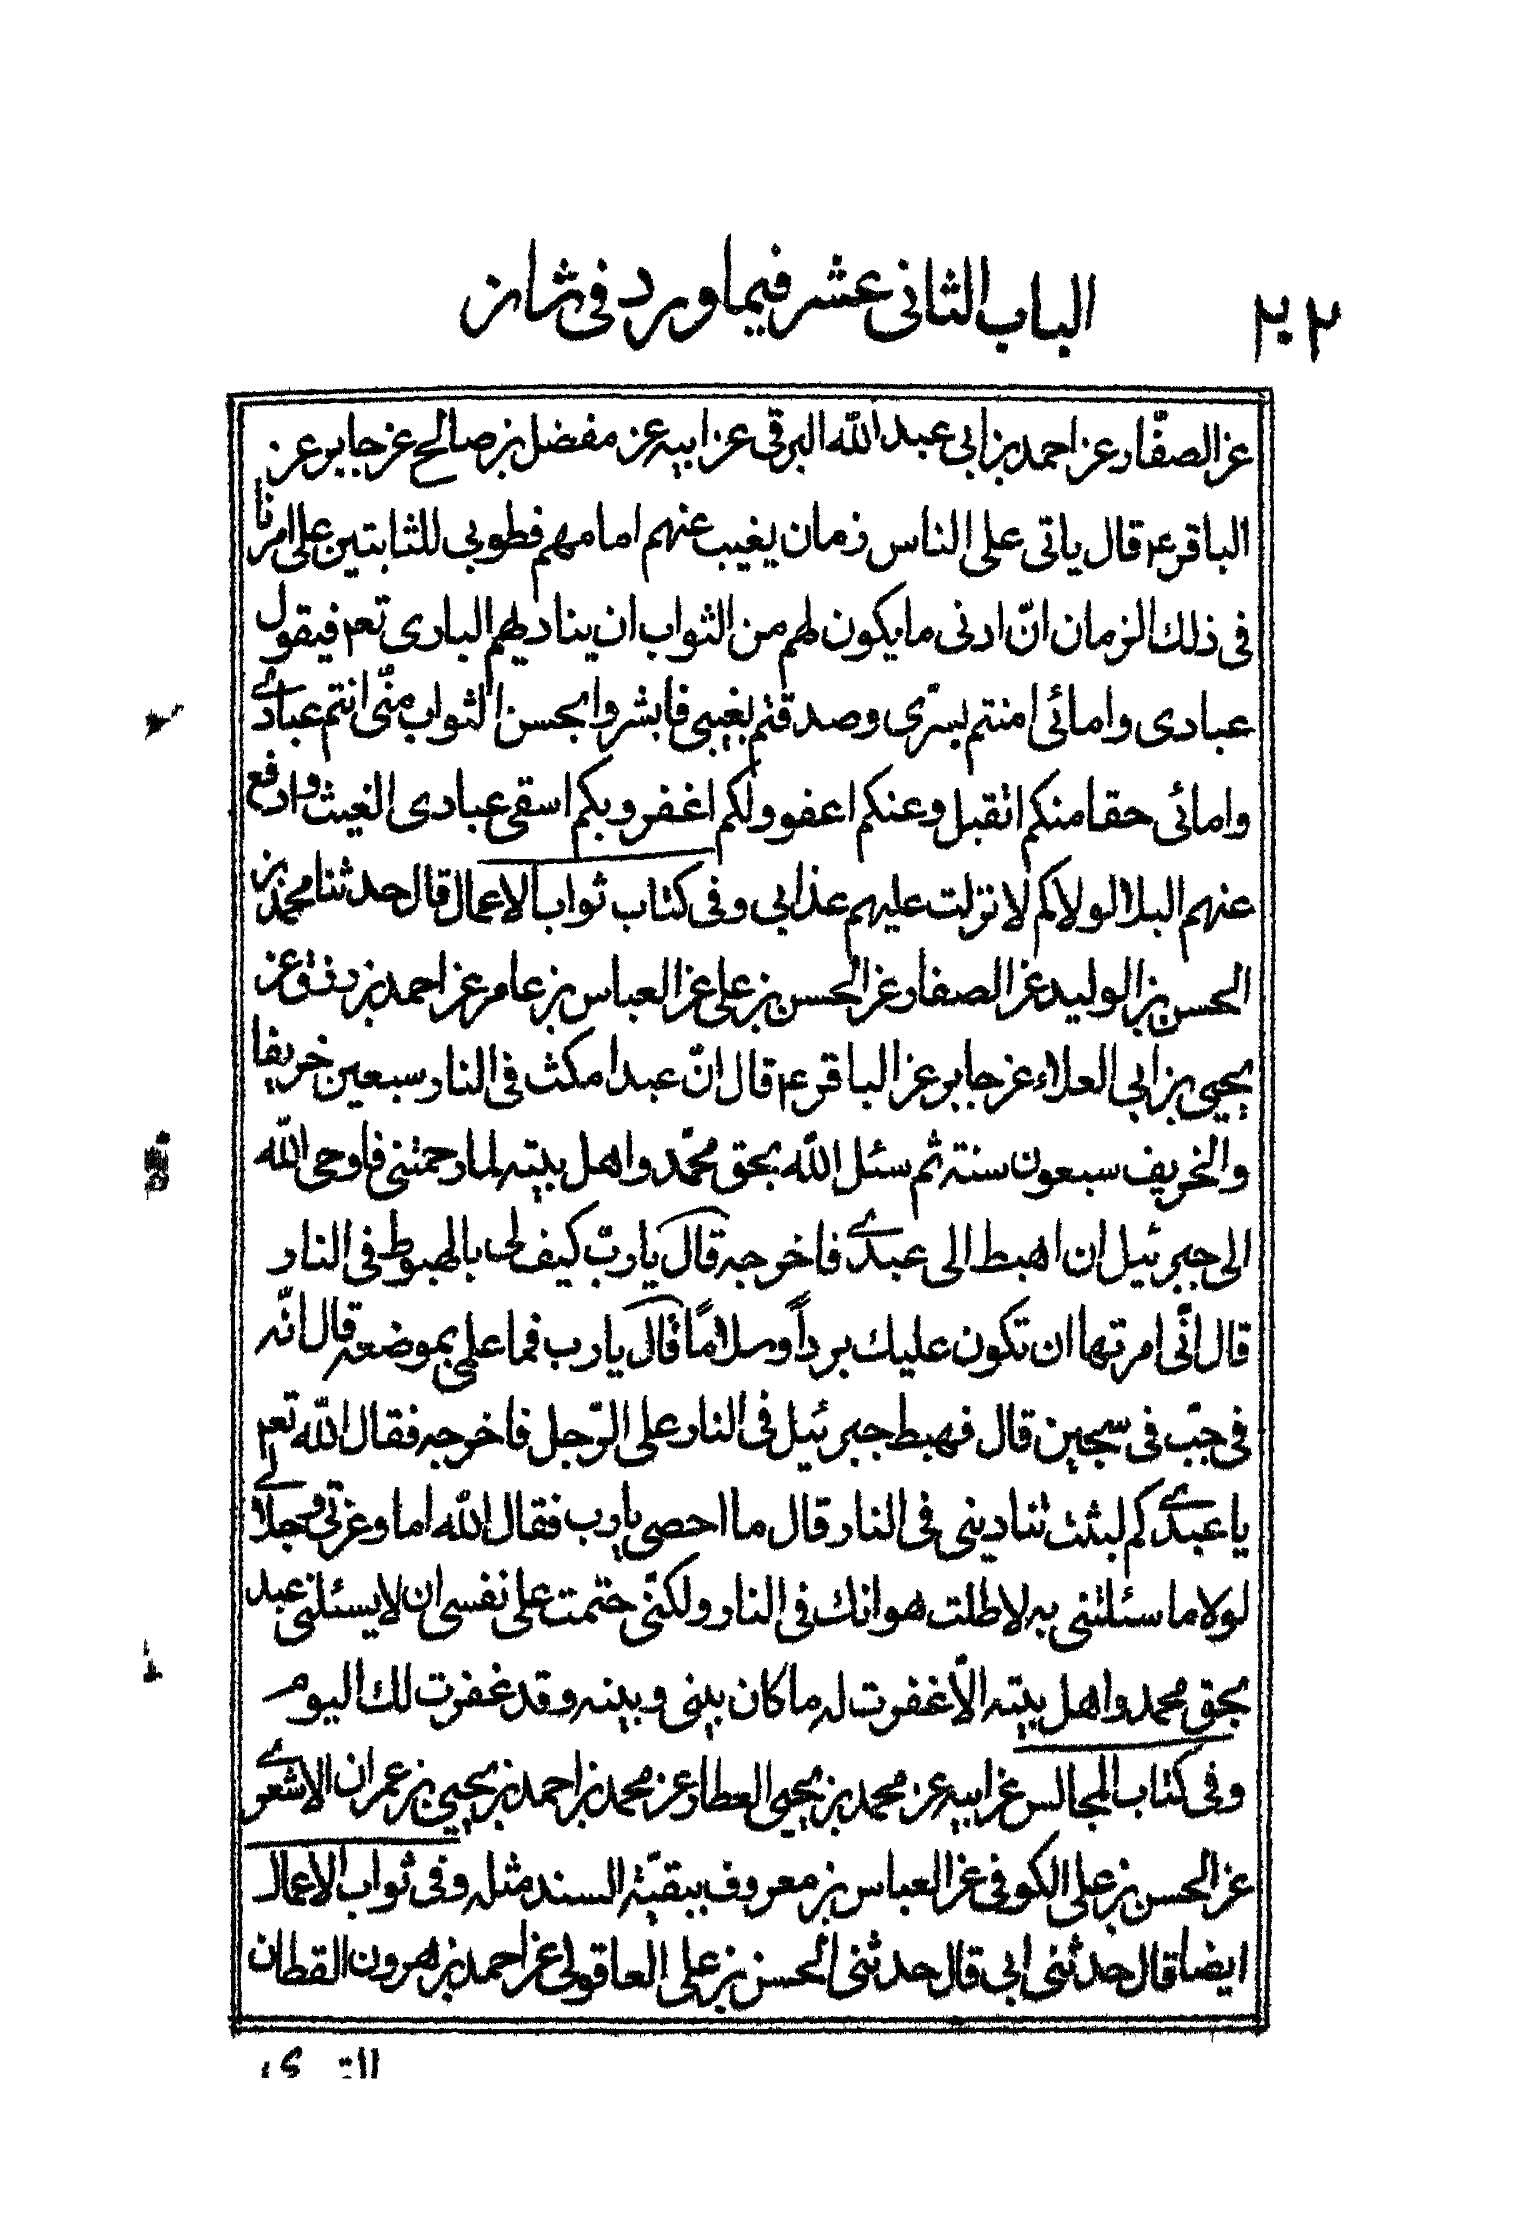 ٢٠٢ الباب الثانی عشر فیما ورد فی شان
عن الصفّار عن احمد بن ابی عبد الله البرقی عن ابیه عن مفضل بن صالح عن جابر عن
الباقر ع قال یاتی علی الناس زمان یغیب عنهم امامهم فطوبی للثابتین علی امرنا
فی ذلك الزمان انّ ادنی ما یکون لهم من الثواب ان ینادیهم الباری تعم فیقول
عبادی وامائی امنتم بسرّی وصدقتم بغیبی فابشروا بحسن الثواب منّی انتم عبادی
وامائی حقا منکم اتقبل وعنکم اعفو ولکم اغفر وبکم اسقی عبادی الغیث وادفع
عنهم البلا لولاکم لانزلت علیهم عذابی وفی کتاب ثواب الاعمال قال حدثنا محمد بن
الحسن بن الولید عن الصفار عن الحسن بن علی عن العباس بن عامر عن احمد بن رزق عن
یحیی بن ابی العلاء عن جابر عن الباقر ع قال انّ عبدا مکث فی النار سبعین خریفا
والخریف سبعون سنته ثم سئل الله بحق محمّد واهل بیته لما رحمتنی فاوحی الله
الی جبرئیل ان اهبط الی عبدی فاخرجه قال یا ربّ کیف لی بالهبوط فی النار
قال انّی امرتها ان تکون علیك برداً وسلاماً قال یا رب فما علمی بموضعه قال انّه
فی جبّ فی سجین قال فهبط جبرئیل فی النار علی الرّجل فاخرجه فقال الله تعم
یا عبدی کم لبثت تنادینی فی النار قال ما احصی یا رب فقال الله اما وعزتی وجلالی
لولا ما سئلتنی به لاطلت هوانك فی النار ولکنّی حتمت علی نفسی ان لا یسئلنی عبد
بحق محمد واهل بیته الّا غفرت له ما کان بینی وبینه وقد غفرت لك الیوم
وفی کتاب المجالس عن ابیه عن محمد بن یحیی العطار عن محمد بن احمد بن یحیی بن عمران الاشعری
عن الحسن بن علی الکوفی عن العباس بن معروف ببقیّة السند مثله وفی ثواب الاعمال
ایضا قال حدثنی ابی قال حدثنی الحسن بن علی العاقولی عن احمد بن هرون القطان